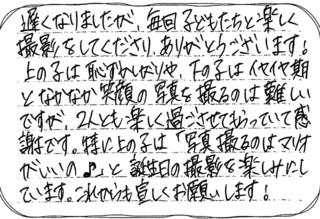 遅くなりましたが、毎回子どもたちと楽しく
撮影をしてくださり、ありがとうございます！
上の子は恥ずかしがりや、下の子はイヤイヤ期
となかなか笑顔の写真を撮るのは難しい
ですが、2人とも楽しく過ごさせてもらっていて感
謝です。特に上の子は「写真撮るのはマリオ
がいいの♪」と誕生日の撮影を楽しみにし
ています。これからも宜しくお願いします！